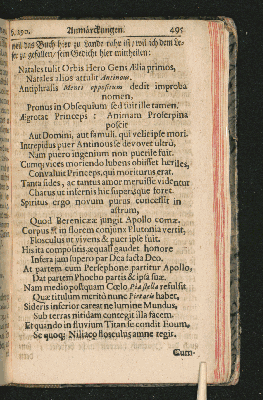 s. 190. Anmärckungen. 495
weil das Buch hier zu Lande rahr ist/ wil ich dem Le-
ser zu gefallen/ sein Gedicht hier mittheilen:
Natales tulit Orbis Hero Gens Ælia primos,
Natales alios attulit Antinous.
Antiphrasis Mentι oppositum dedit improba
nomen,
Pronus in Obsequium sed tuit ille tamen.
Ægrotat Princeps: Animam Proserpina
poscit
Aut Domini, aut famuli, qui velit ipse mori.
Intrepidus puer Antinous se devovet ultrò,
Nam puero ingenium non puerile fuit.
Cumq; vices moriendo lubens obiisset heriles,
Convaluit Princeps, qui moriturus erat.
Tanta fides, ac tantus amor meruisse videntur
Charus ut infernis hic superisque foret.
Spiritus ergo novum purus concessit in
astrum,
Quod Berenicæ jungit Apollo comæ.
Corpus & in florem conjunx Plutonia vertit,
Flosculus ut vivens & puer ipse fuit.
His ita compositis æquali gaudet honore
Infera jam supero par Dea facta Deo.
At partem cum Persephone partitur Apollo,
Dat partem Phœbo partis & ipsa suæ.
Nam medio postquam Cœlo Pia stella refulsit
Quæ titulum meritò nunc Pietatis habet,
Sideris inferior careat ne lumine Mundus,
Sub terras nitidam contegit illa facem.
Et quando in fluvium Titan se condit Eoum,
Se quoq; Niliaco flosculus amne tegis.
Cum-